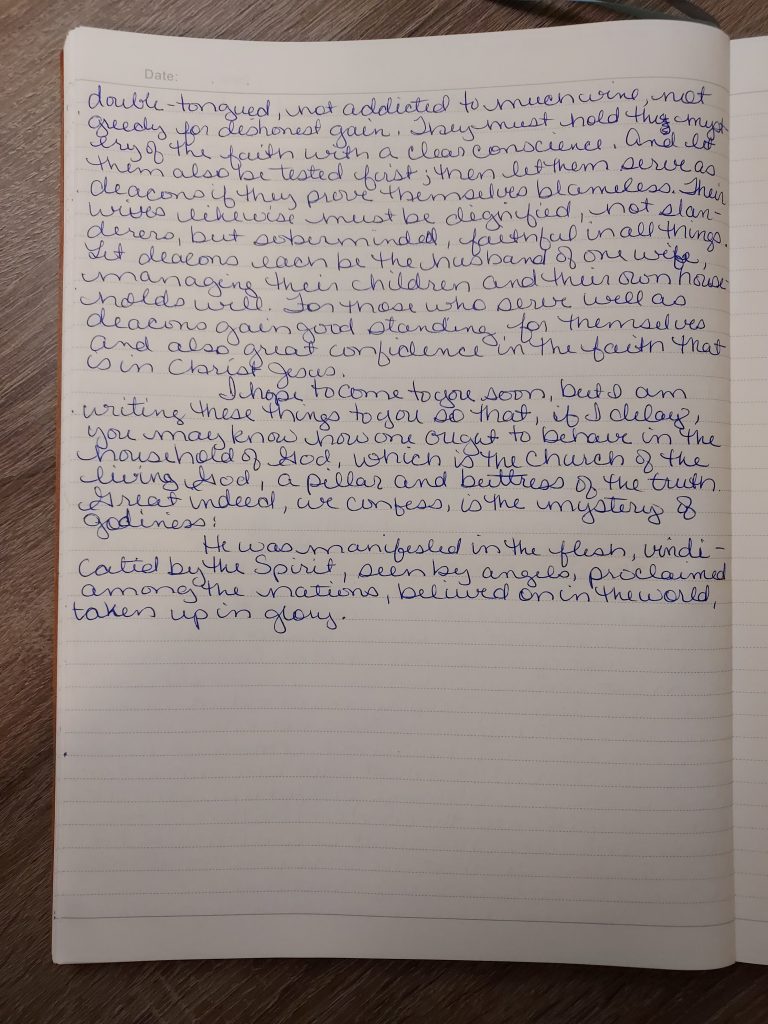 Date:
double-tongued, not addicted to much wine, not
greedy for dishonest gain. They must hold the myst
ery of the faith with a clear conscience. And let
them also be tested first; then let them serve as
deacons if they prove themselves blameless. Their
wives likewise must be dignified, not slan-
derers, but soberminded, faithful in all things.
Let deacons each be the husband of one wife,
managing their children and their own house-
holds well. For those who serve well as
deacons gain good standing for themselves
and also great confidence in the faith that
is in Christ Jesus.
I hope to come to you soon, but I am
writing these things to you so that, if I delay,
you may know how one ought to behave in the
household of God, which is the Church of the
living God, a pillar and buttress of the truth.
Great indeed, we confess, is the mystery of
godiness:
He was manifested in the flesh, vindi-
cated by the Spirit, seen by angels, proclaimed
among the nations, believed on in the world,
taken up in glory.